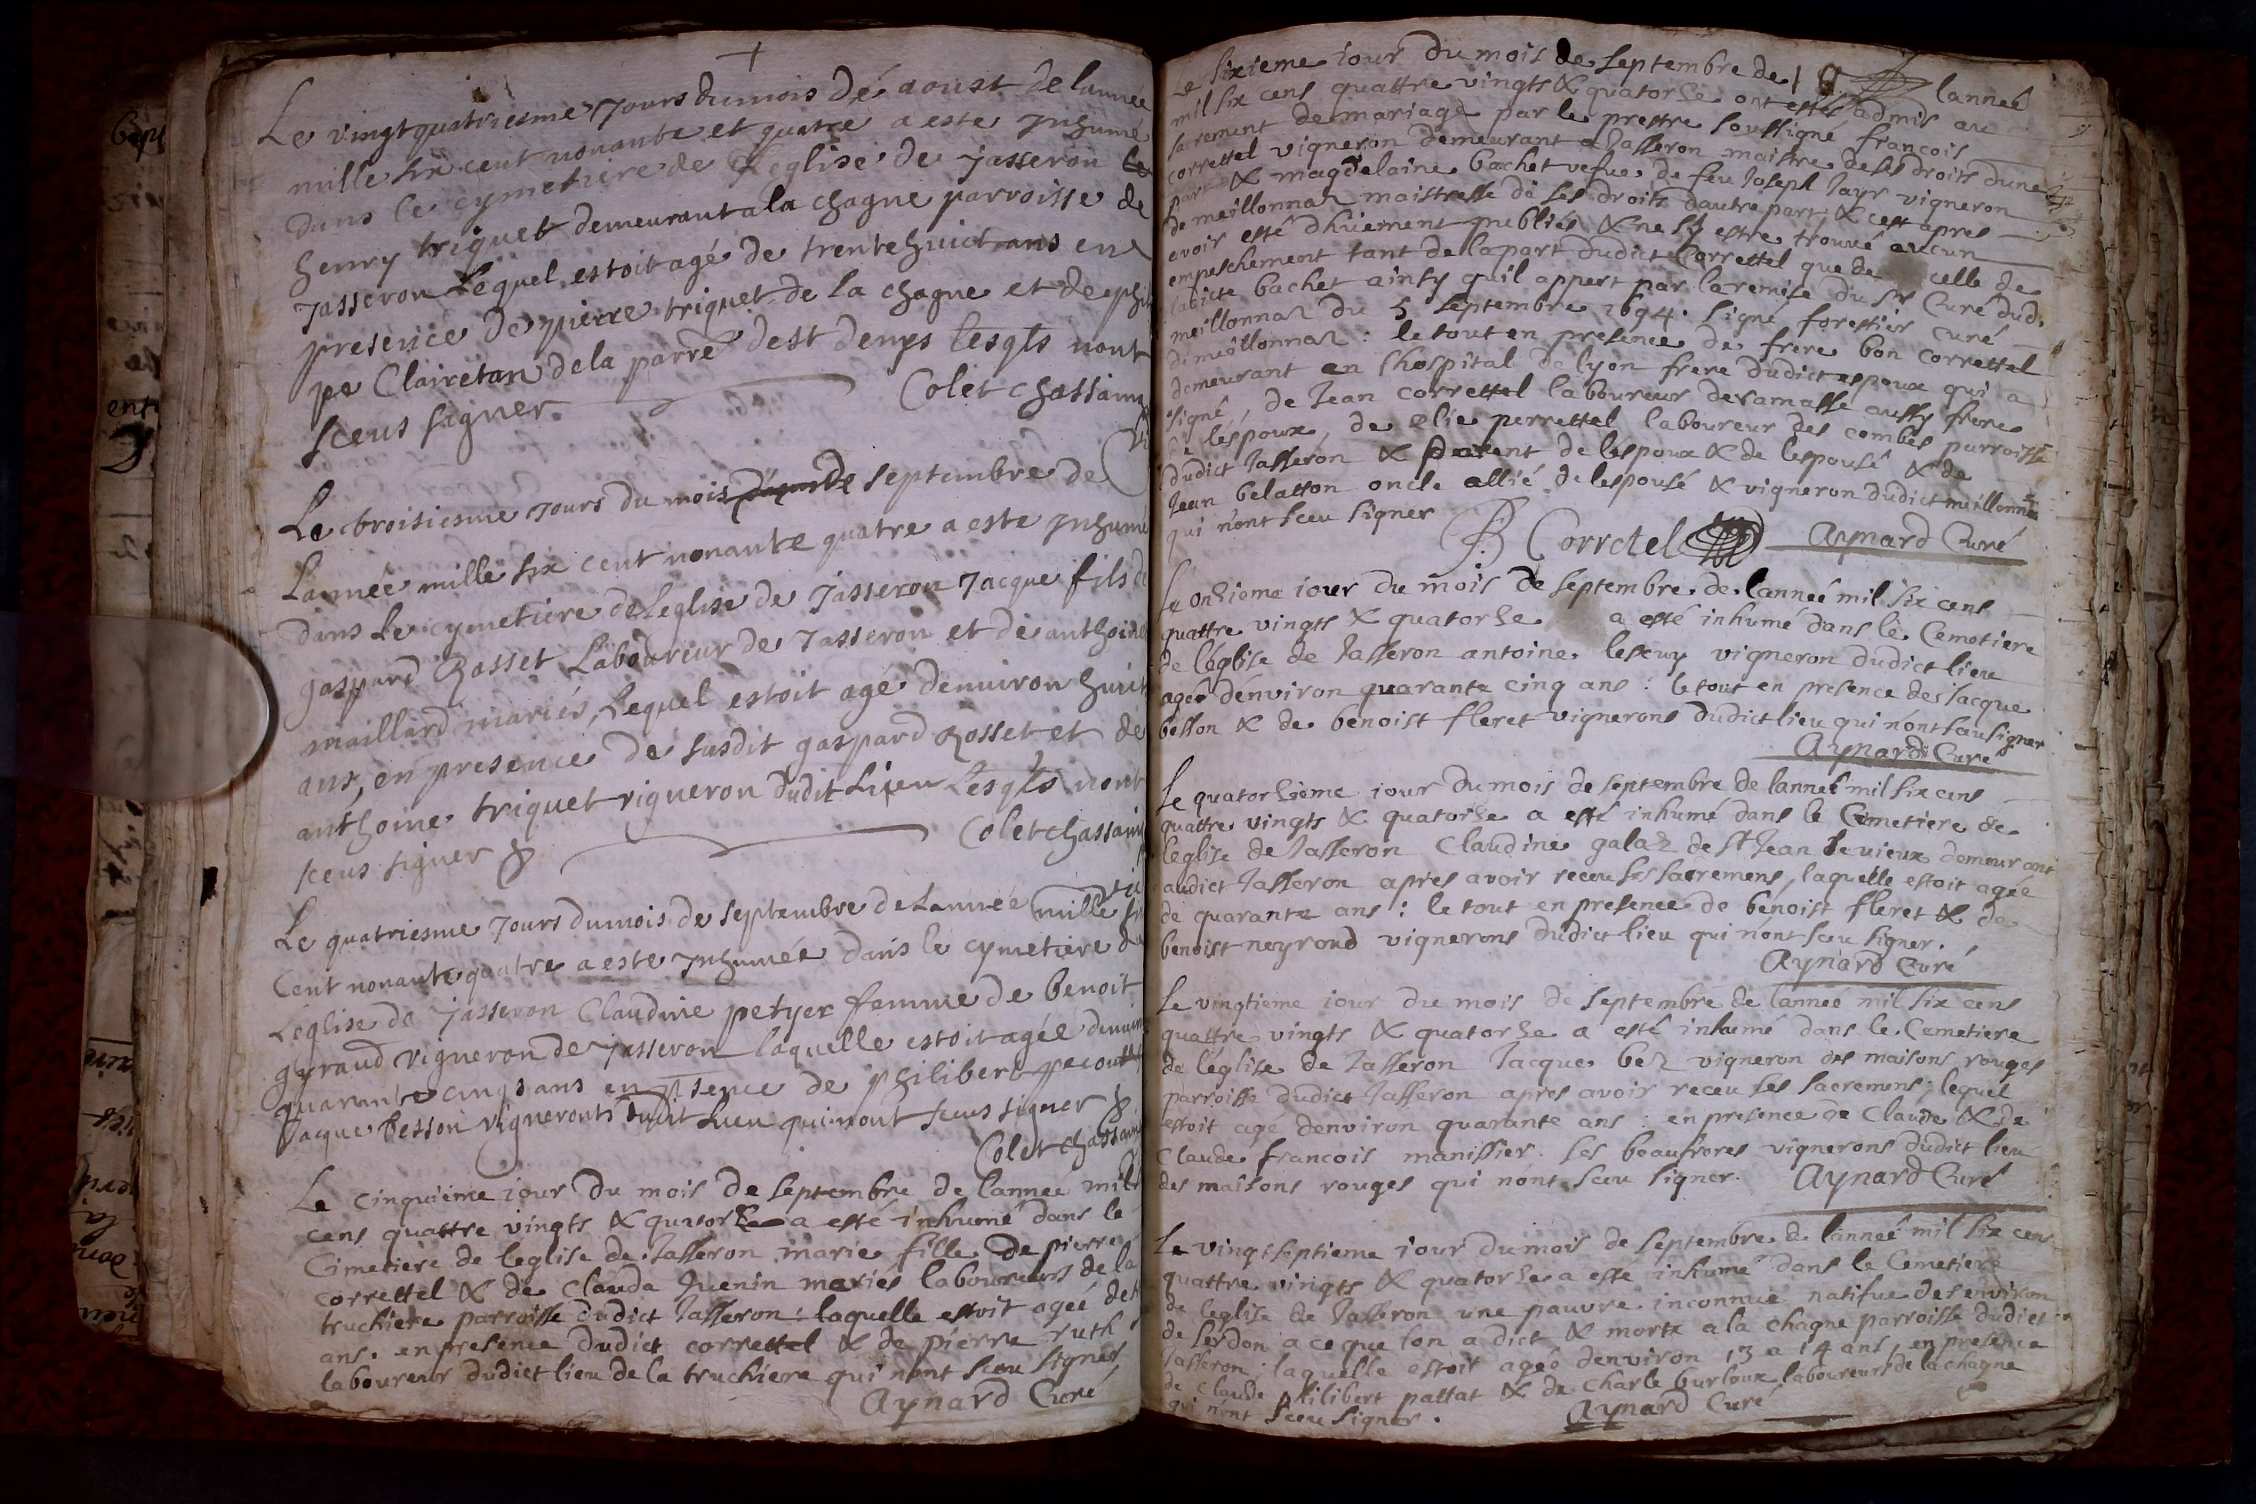 Le vingtquatriesme Jours du mois De aoust de lannee
mille six cent nonante et quatre a este Jnhumé
dans le cymetiere de leglise de Jasseron
henry triquet demeurant a la chagne parroisse de
Jasseron Lequel estoit agé de trente huict ans en
presence de pierre triquet de la chagne et de phi
pe Clairetan de la parre dest denys lesqls nont
sceus signer. Colet chassain
Le troisiesme Jours du mois septembre de
Lannée mille six cent nonante quatre a este Jnhumé
dans le cymetiere de Leglise de Jasseron Jacque fils de
gaspard Rosset Laboureur de Jasseron et de anthoine
maillard mariés, Lequel estoit agé denuiron huict
ans, en presence de susdit gaspard Rosset et de
anthoine triquet vigneron dudit Lieu Lesqls nont
sceus signer Colet chassain
Le quatriesme Jours du mois de septembre de Lannée mille six
Cent nonante quatre a este Jnhumée dans le cymetiere de
Leglise de Jasseron Claudine petyer femme de benoit
gyraud vigneron de Jasseron laquelle estoit agée denuiron
quarante cinqs ans en psence de philibert
Jacque besson vignerons dudit Lieu qui nont sceus signer
Colet chassain
Le cinquiéme iour du mois de septembre de lannee mil
cens quattre vingts & quatorze a esté inhumé dans le
Cimetiere de leglise de Jasseron marie fille de pierre
correttel & de Clauda Quenin mariés laboureurs de la
truchiere parroisse dudict Jasseron : laquelle estoit ageé de
ans. en presence dudict correttel & de pierre ruth
laboureur dudict lieu de la truchiere qui nont sceu signer
Aynard Curé
Le sixieme iour du mois de septembre de lanneé
mil six cens quattre vingts & quatorze ont estés admis au
sacrement de mariage par le prestre soussigné francois
correttel vigneron demeurant a Jasseron maistre de ses droits dune
part & magdelaine bachet vefue de feu Joseph Jayr vigneron
de meillonnaz maistresse de ses droits dautre part & cest apres
avoir esté dhuement publiés & ne sy estre trouué aucun
empeschement tant de la part dudict Correttel que de celle de
ladicte bachet ainsy quil appert par la remise du sr Curé dud.
meillonnaz du 5 septembre 1694. signé forestier curé
de meillonnaz : le tout en presence de frere bon correttel
demeurant en lhospital de lyon frere dudict espoux qui a
signé, de Jean correttel laboureur de ramasse aussy frere
de léspoux, de elie perrettel laboureur des combes parroisse
dudict Jasseron & parent de lespoux & de lespousé & de
Jean belatton oncle allié de lespousé & vigneron dudict meillonnaz
qui nont sceu signer
B Corretel Aynard Curé
Le onzieme iour du mois de septembre de lanneé mil six cens
quattre vingts & quatorze a esté inhumé dans le Cemetiere
de léglise de Jasseron antoine lescuy vigneron dudict lieu
ageé dénviron quarante cinq ans : le tout en presence de Jacque
besson & de benoist fleret vignerons dudict lieu qui nont sceu signer
Aynard Curé
Le quatorzieme iour du mois de septembre de lanneé mil six cens
quattre vingts & quatorze a esté inhumé dans le Cimetiere de
leglise de Jasseron Claudine galaz de st Jean le vieux demeurant
audict Jasseron apres avoir receu ses sacremens, laquelle estoit agée
de quarante ans : le tout en presence de benoist fleret & de
benoist neyrond vignerons dudict lieu qui nont sceu signer.
Aynard Curé
Le vingtieme iour du mois de septembre de lanneé mil six cens
quattre vingts & quatorze a esté inhumé dans le Cemetiere
de léglise de Jasseron Jacque bez vigneron des maisons rouges
parroisse dudict Jasseron apres avoir receu ses sacremens, lequel
estoit agé denviron quarante ans : en presence de Claude & de
Claude francois manissier ses beaufreres vignerons dudict lieu
des maisons rouges qui nont sceu signer. Aynard Curé
Le vingtseptieme iour du mois de septembre de lanneé mil six cens
quattre vingts & quatorze a esté inhumé dans le Cemetiere
de leglise de Jasseron une pauvre inconnue natifue des environ
de serdon a ce que lon a dict & morte a la chagne parroisse dudict
Jasseron laquelle estoit ageé denviron 13 a 14 ans, en presence
de Claude philibert pattat & de Charle burloux laboureurs de la chagne
qui nont sceu signer. Aynard Curé